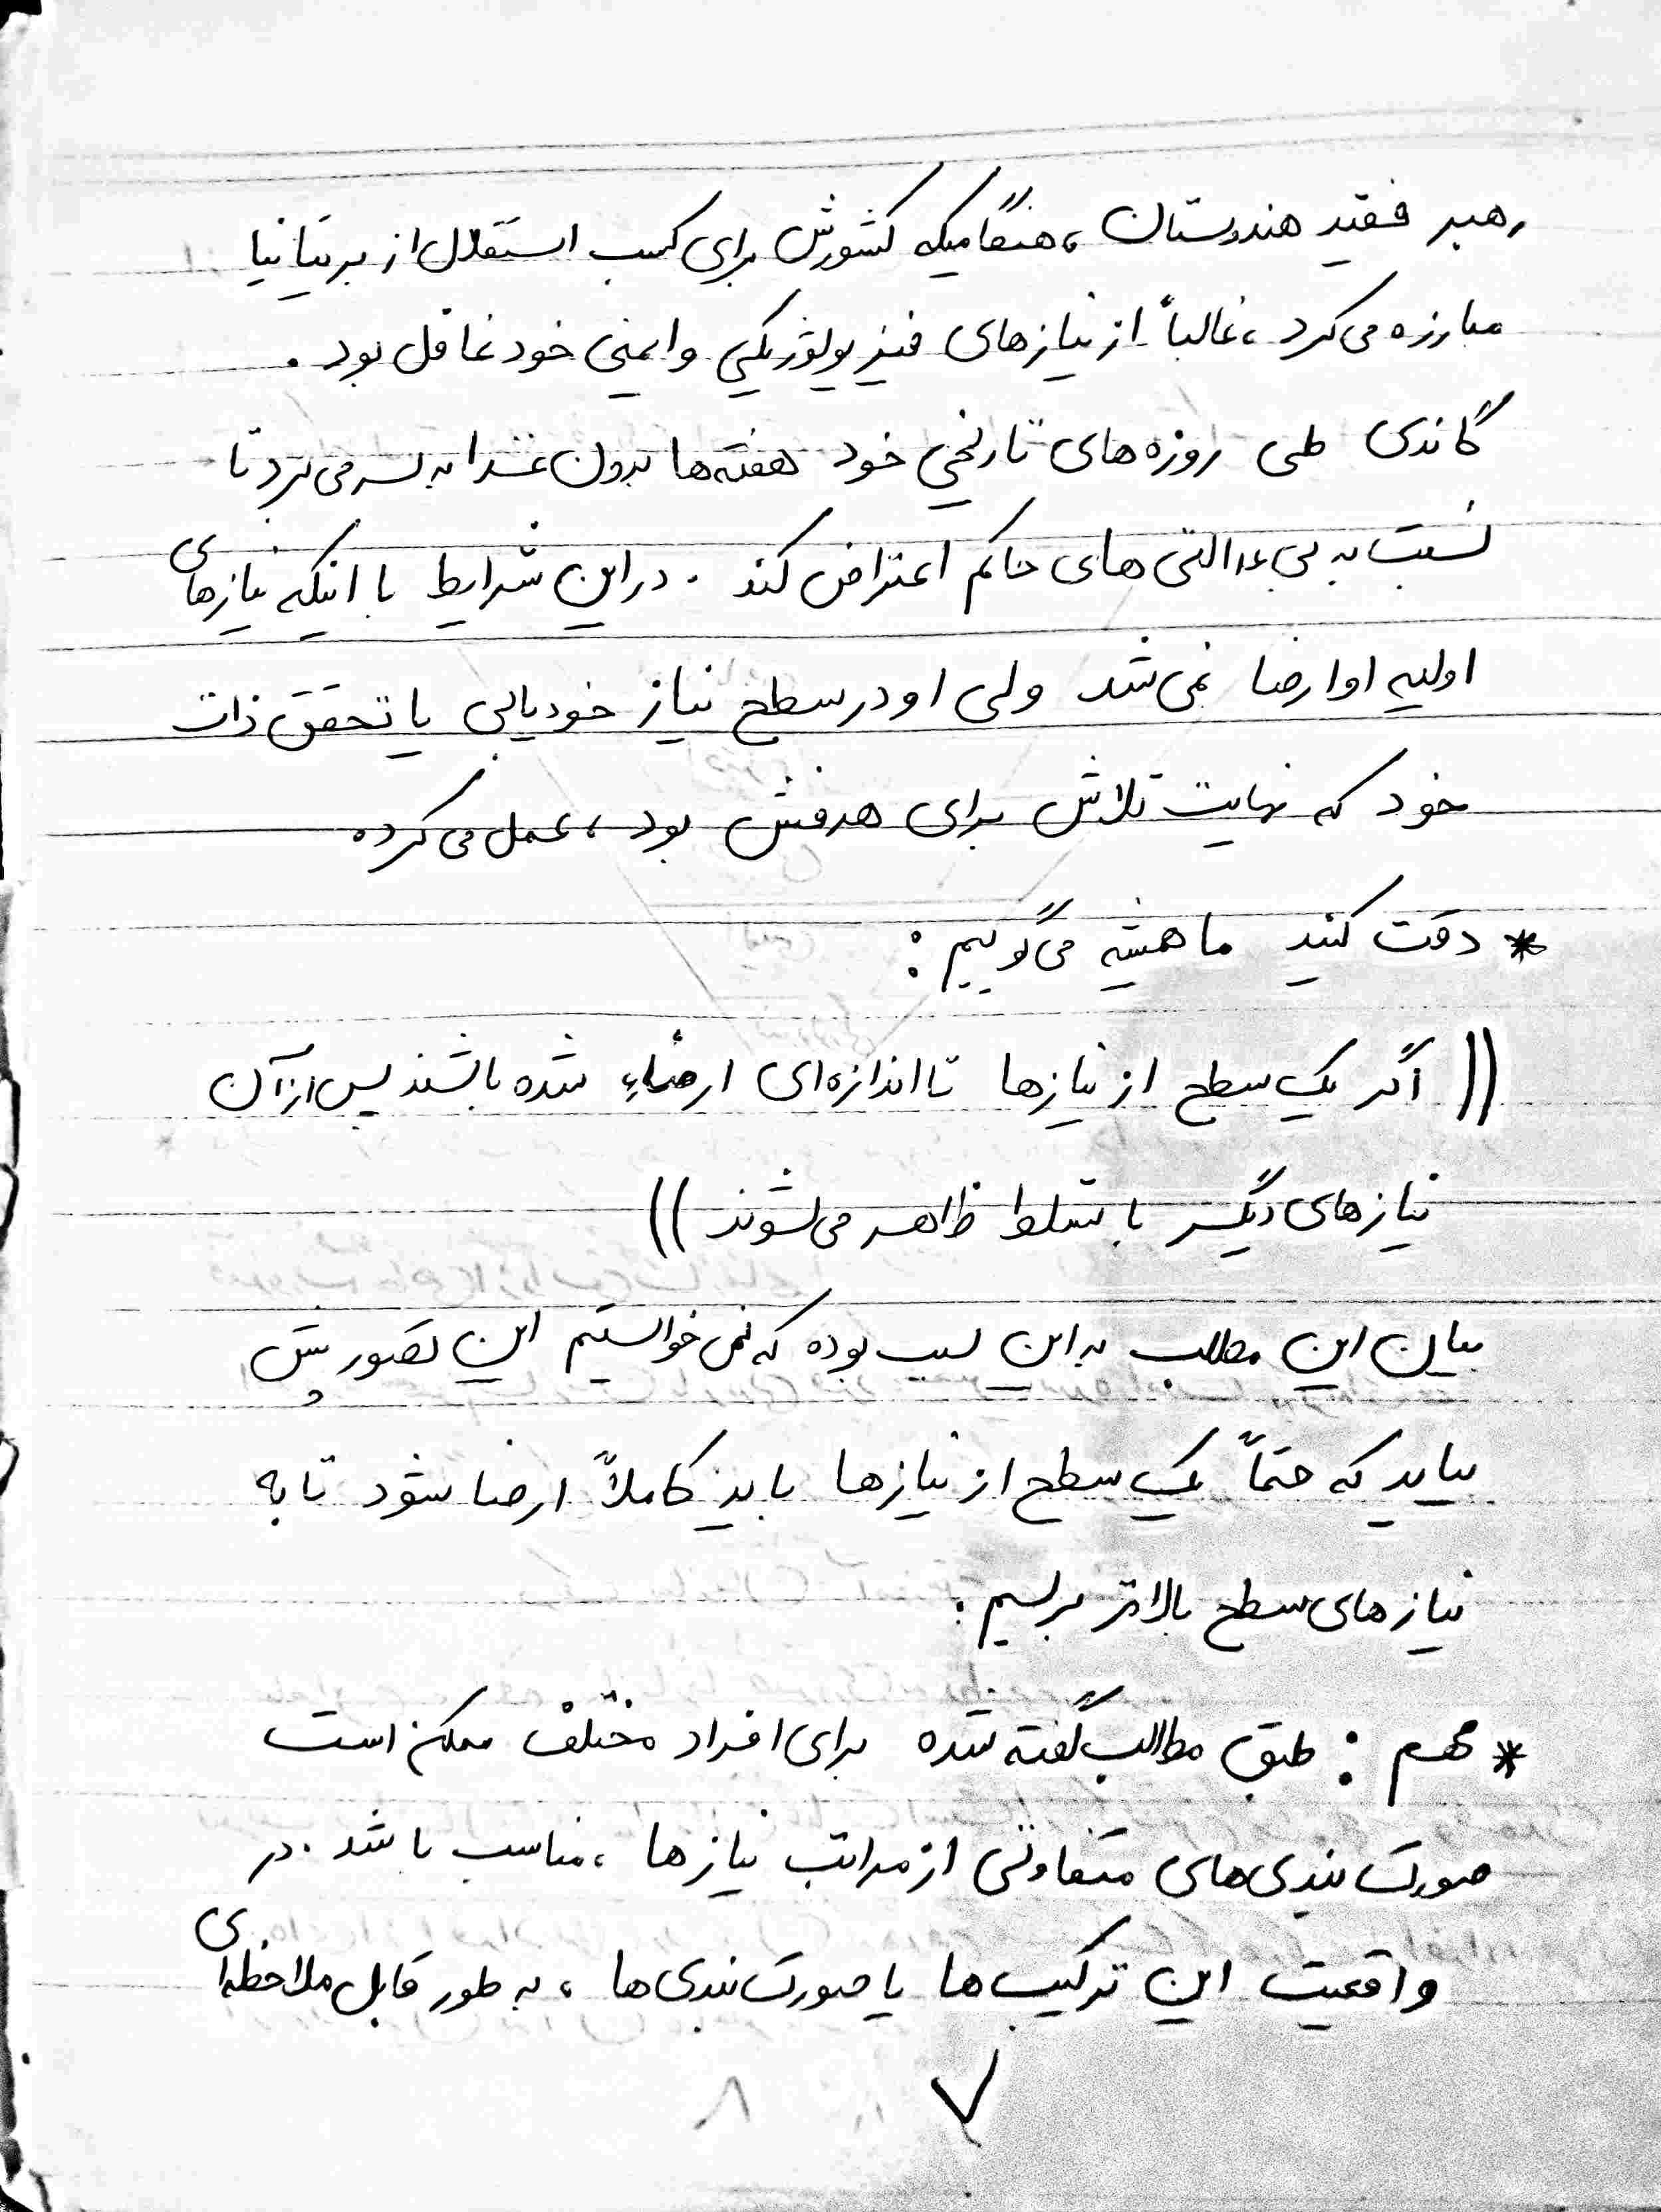 رهبر فقید هندوستان، هنگامیکه کشورش برای کسب استقلال از بریتانیا
مبارزه می‌کرد، غالباً از نیازهای فیزیولوژیکی و ایمنی خود غافل بود.
گاندی طی روزه‌های تاریخی خود هفته‌ها بدون غذا به سر می‌برد تا
نسبت به بی‌عدالتی‌های حاکم اعتراض کند. در این شرایط با اینکه نیازهای
اولیه او ارضا نمی‌شد ولی او در سطح نیاز خودیابی یا تحقق ذات
خود که نهایت تلاش برای هدفش بود، عمل می‌کرده
* دقت کنید ما همیشه می‌گوییم:
(( اگر یک سطح از نیازها تا اندازه‌ای ارضاء شده باشند پس از آن
نیازهای دیگر با تسلط ظاهر می‌شوند ))
بیان این مطلب به این سبب بوده که نمی‌خواستیم این تصور پیش
بیاید که حتماً یک سطح از نیازها باید کاملاً ارضا شود تا به
نیازهای سطح بالاتر برسیم.
* مهم: طبق مطالب گفته شده برای افراد مختلف ممکن است
صورت‌بندی‌های متفاوتی از مراتب نیازها، مناسب باشد. در
واقعیت این ترکیب‌ها یا صورت‌بندی‌ها، به طور قابل ملاحظه‌ای
۷